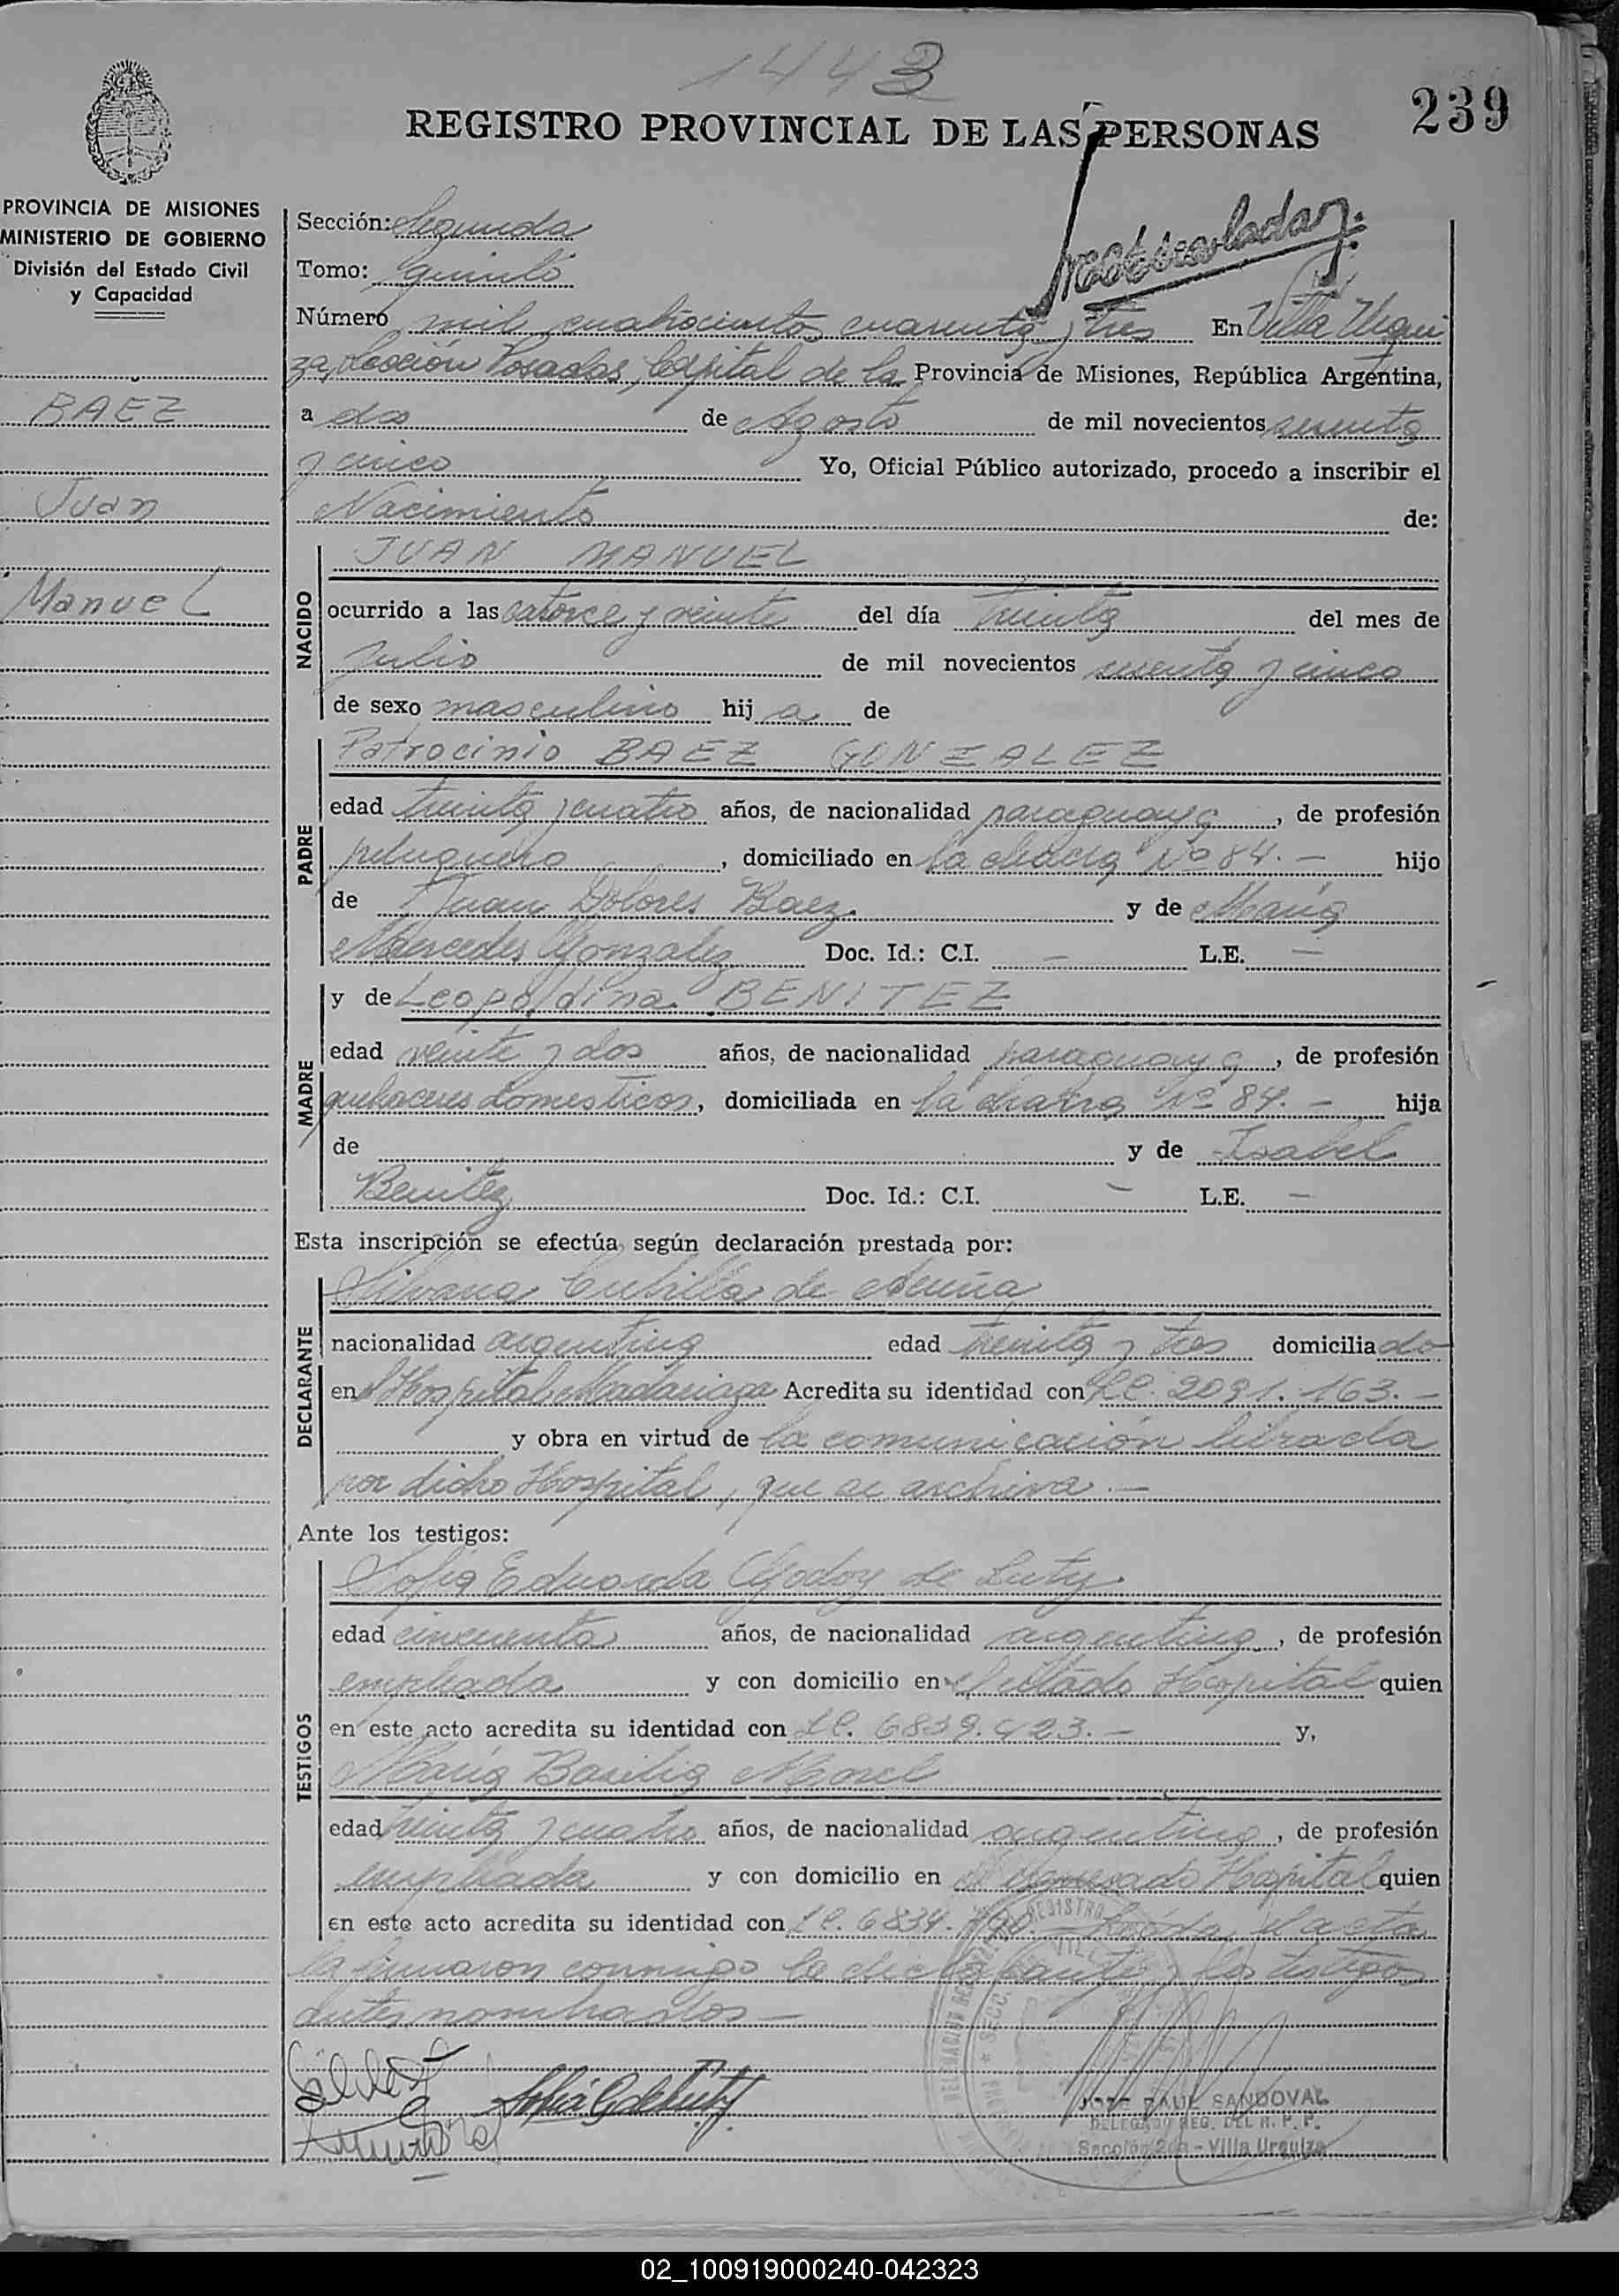 1443
239
REGISTRO PROVINCIAL DE LAS PERSONAS
PROVINCIA DE MISIONES
MINISTERIO DE GOBIERNO
División del Estado Civil
y Capacidad
BAEZ
Juan
Manuel
Sección: Segunda
Tomo: quinto
Número mil cuatrocientos cuarenta y tres En Villa Urqui
za, Sección Posadas, Capital de la Provincia de Misiones, República Argentina,
a dos de Agosto de mil novecientos sesenta
y cinco Yo, Oficial Público autorizado, procedo a inscribir el
Nacimiento de:
NACIDO
JUAN MANUEL
ocurrido a las catorce y veinte del día treinta del mes de
Julio de mil novecientos sesenta y cinco
de sexo masculino hij a de
PADRE
Patrocinio BAEZ GONZALEZ
edad treinta y cuatro años, de nacionalidad paraguaya, de profesión
peluquero, domiciliado en la chacra Nº 84.— hijo
de Juan Dolores Baez. y de María
Mercedes Gonzalez Doc. Id.: C.I. — L.E. —
MADRE
y de Leopoldina BENITEZ
edad veinte y dos años, de nacionalidad paraguaya, de profesión
quehaceres domesticos, domiciliada en la chacra Nº 84.— hija
de y de Isabel
Benitez Doc. Id.: C.I. — L.E. —
Esta inscripción se efectúa según declaración prestada por:
DECLARANTE
Silvana Cubilla de Acuña
nacionalidad argentina edad treinta y tres domicilia do
en Hospital Madariaga Acredita su identidad con LC. 2091.163.—
y obra en virtud de la comunicación librada
por dicho Hospital, que se archiva.—
Ante los testigos:
TESTIGOS
Sofia Eduarda Godoy de Luty
edad cincuenta años, de nacionalidad argentina, de profesión
empleada y con domicilio en el citado Hospital quien
en este acto acredita su identidad con LC. 6839.423.— y,
María Basilia Morel
edad treinta y cuatro años, de nacionalidad argentina, de profesión
empleada y con domicilio en el expresado Hospital quien
en este acto acredita su identidad con LC. 6834. Leída el acta
la firmaron conmigo la declarante y los testigos
antes nombrados—
Sofia G de Luty
JOSE RAUL SANDOVAL
DELEGADO REG. DEL R. P. P.
Sección 2da - Villa Urquiza
02_100919000240-042323